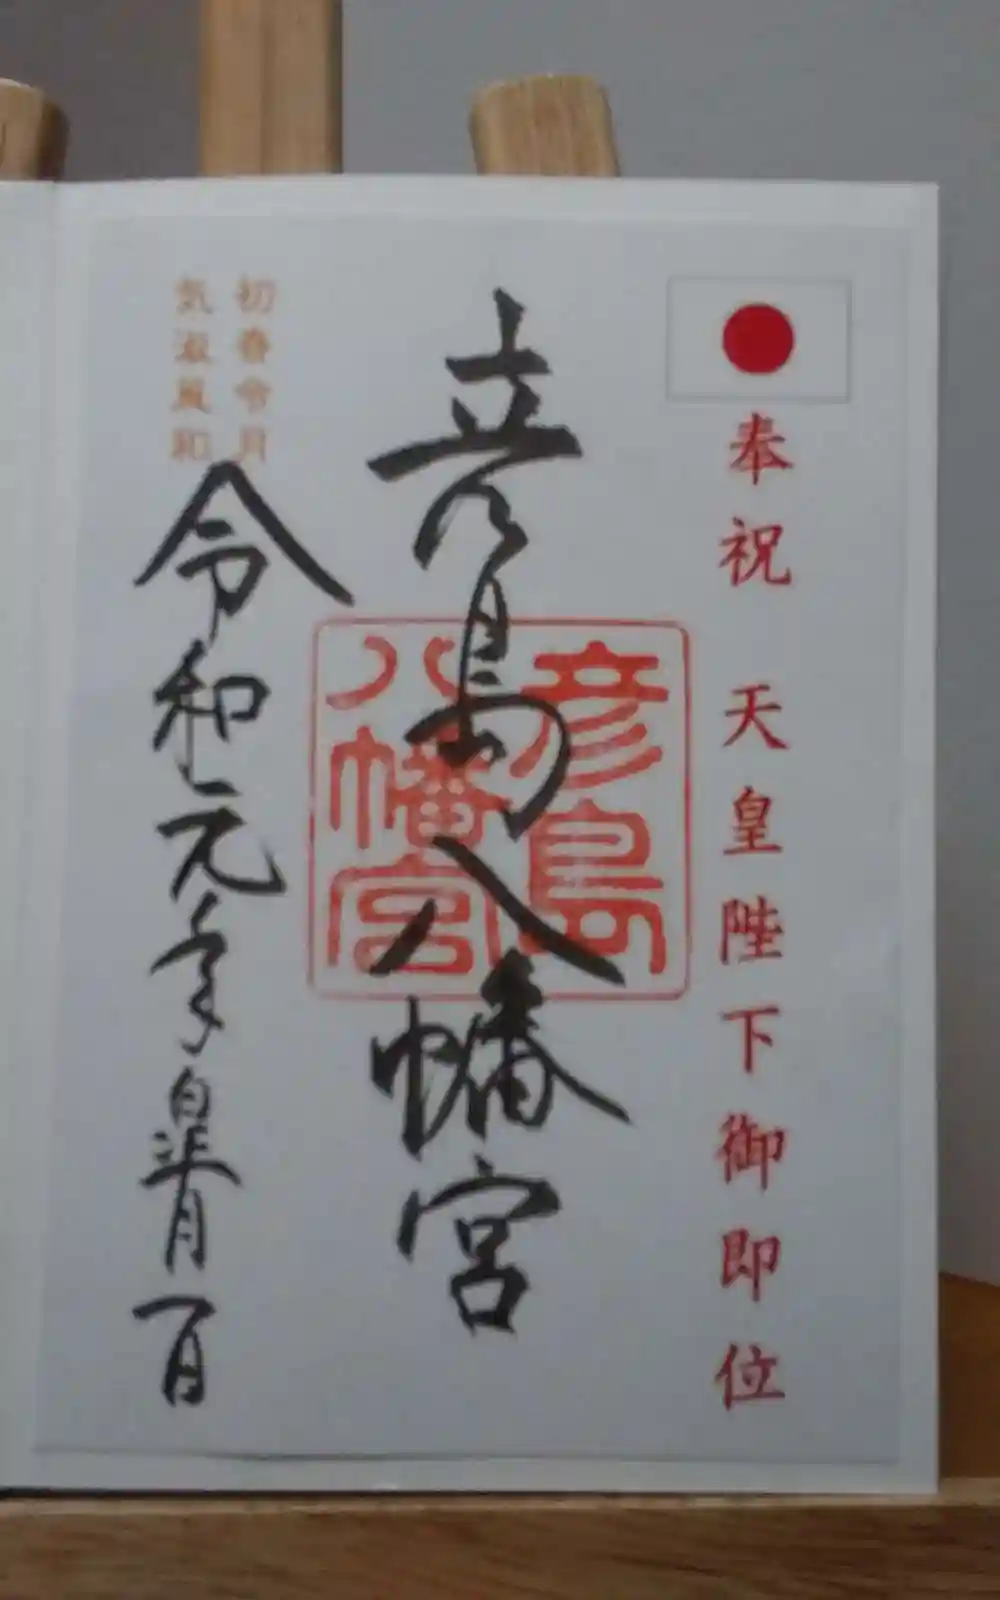 奉祝 天皇陛下御即位
彦島八幡宮
彦島
八幡宮
初春令月
気淑風和
令和元年皐月一日